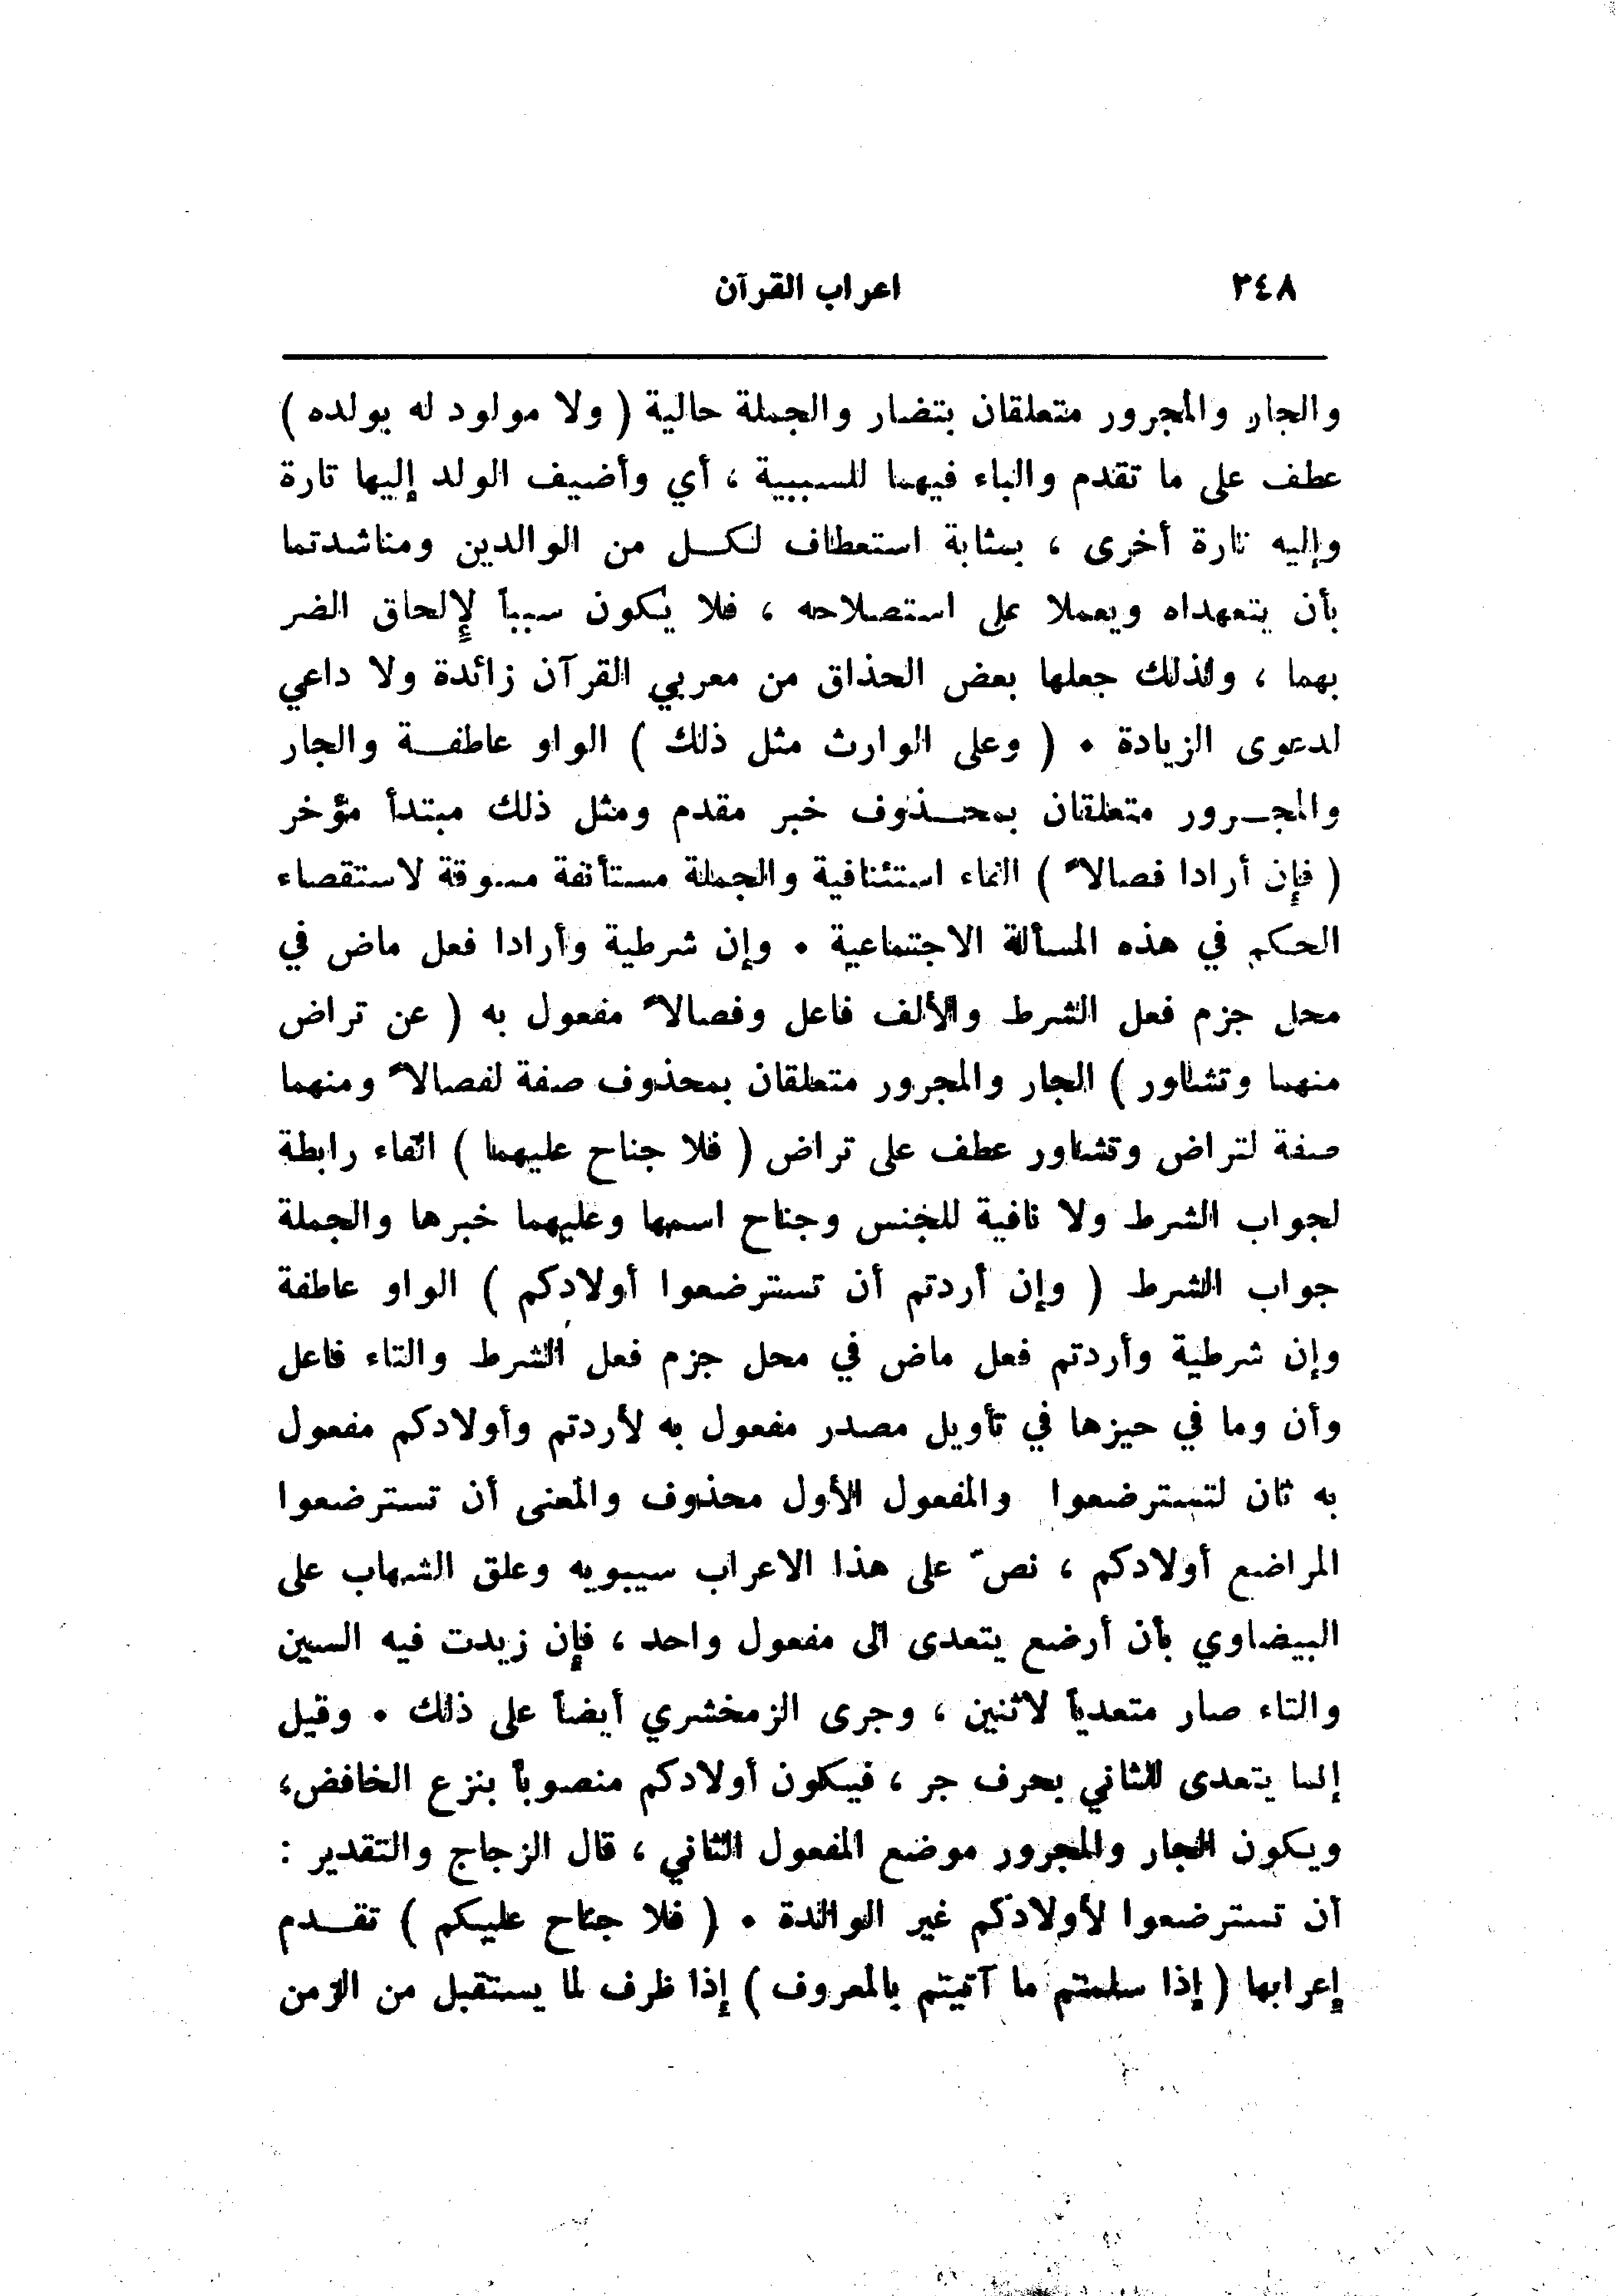 ٣٤٨ اعراب القرآن
والجار والمجرور متعلقان بتضار والجملة حالية ( ولا مولود له بولده )
عطف على ما تقدم والباء فيهما للسببية ، أي وأضيف الولد إليها تارة
وإليه تارة أخرى ، بمثابة استعطاف لكل من الوالدين ومناشدتما
بأن يتعهداه ويعملا على استصلاحه ، فلا يكون سبباً لإلحاق الضر
بهما ، ولذلك جعلها بعض الحذاق من معربي القرآن زائدة ولا داعي
لدعوى الزيادة . ( وعلى الوارث مثل ذلك ) الواو عاطفة والجار
والمجرور متعلقان بمحذوف خبر مقدم ومثل ذلك مبتدأ مؤخر
( فإن أرادا فصالاً ) الفاء استئنافية والجملة مستأنفة مسوقة لاستقصاء
الحكم في هذه المسألة الاجتماعية . وإن شرطية وأرادا فعل ماض في
محل جزم فعل الشرط والألف فاعل وفصالاً مفعول به ( عن تراض
منهما وتشاور ) الجار والمجرور متعلقان بمحذوف صفة لفصالاً ومنهما
صفة لتراض وتشاور عطف على تراض ( فلا جناح عليهما ) الفاء رابطة
لجواب الشرط ولا نافية للجنس وجناح اسمها وعليهما خبرها والجملة
جواب الشرط ( وإن أردتم أن تسترضعوا أولادكم ) الواو عاطفة
وإن شرطية وأردتم فعل ماض في محل جزم فعل الشرط والتاء فاعل
وأن وما في حيزها في تأويل مصدر مفعول به لأردتم وأولادكم مفعول
به ثان لتسترضعوا والمفعول الأول محذوف والمعنى أن تسترضعوا
المراضع أولادكم ، نصّ على هذا الاعراب سيبويه وعلق الشهاب على
البيضاوي بأن أرضع يتعدى الى مفعول واحد ، فإن زيدت فيه السين
والتاء صار متعدياً لاثنين ، وجرى الزمخشري أيضاً على ذلك . وقيل
إنما يتعدى للثاني بحرف جر ، فيكون أولادكم منصوباً بنزع الخافض،
ويكون الجار والمجرور موضع المفعول الثاني ، قال الزجاج والتقدير :
أن تسترضعوا لأولادكم غير الوالدة . ( فلا جناح عليكم ) تقدم
إعرابها ( إذا سلمتم ما آتيتم بالمعروف ) إذا ظرف لما يستقبل من الزمن